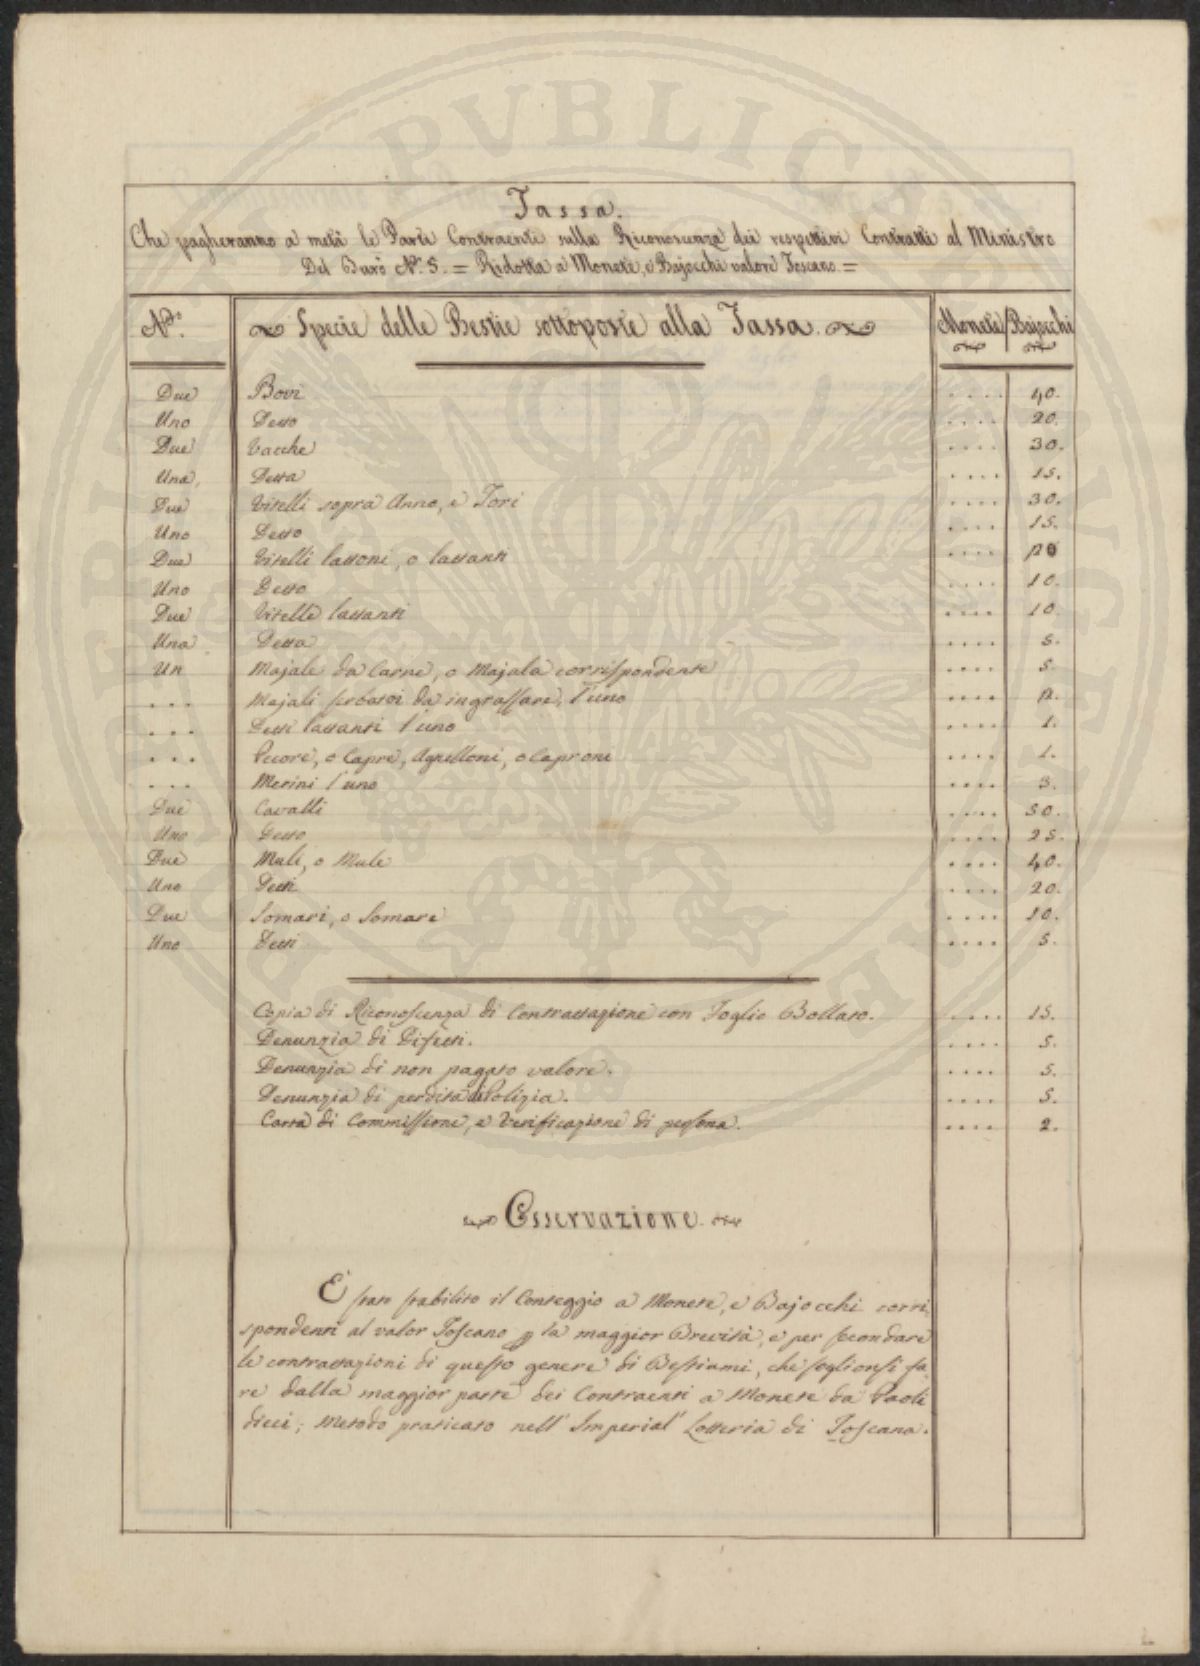 Tassa.
Che pagheranno a metà le Parti Contraenti sulla Riconoscenza dei respettivi Contratti al Ministro
Del Burò N.º 5. = Ridotta a Monete, e Bajocchi valore Toscano. =
N.º Specie delle Bestie sottoposte alla Tassa. Monete Bajocchi
Due Bovi .... 40.
Uno Detto .... 20.
Due Vacche .... 30.
Una, Detta .... 15.
Due Vitelli sopra Anno, e Tori .... 30.
Uno Detto .... 15.
Due Vitelli lattoni, o lattanti .... 20
Uno Detto .... 10.
Due Vitelle lattanti .... 10.
Una Detta .... 5.
Un Majale da Carne, o Majala corrispondente .... 5.
... Majali da ingrassare, l'uno .... 2.
... Detti lattanti l'uno .... 1.
... Pecore, o Capre, Agnelloni, o Caproni .... 1.
... Merini l'uno .... 3.
Due Cavalli .... 50.
Uno Detto .... 25.
Due Muli, o Mule .... 40.
Uno Detti .... 20.
Due Somari, o Somare .... 10.
Uno Detti .... 5.
Copia di Riconoscenza di Contrattazione con Foglio Bollato. .... 15.
Denunzia di Difetti. .... 5.
Denunzia di non pagato valore. .... 5.
Denunzia di perdita di Polizia. .... 5.
Carta di Commissione, e Verificazione di persona. .... 2.
Osservazione.
E' stato stabilito il Conteggio a Monete, e Bajocchi corri-
spondenti al valor Toscano p la maggior Brevità, e per secondare
le contrattazioni di questo genere di Bestiami, che soglionsi fa-
re dalla maggior parte dei Contraenti a Monete da Paoli
dieci; Metodo praticato nell' Imperial' Lotteria di Toscana.
PUBLICA